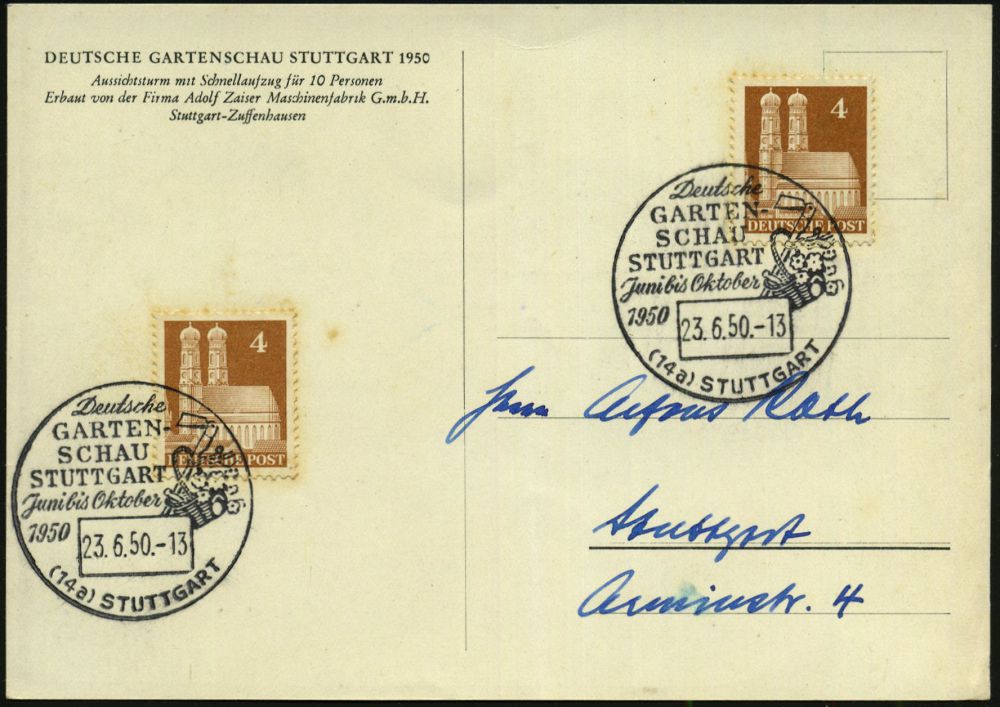 DEUTSCHE GARTENSCHAU STUTTGART 1950
Aussichtsturm mit Schnellaufzug für 10 Personen
Erbaut von der Firma Adolf Zaiser Maschinenfabrik G.m.b.H.
Stuttgart-Zuffenhausen
4
DEUTSCHE POST
Deutsche
GARTEN-
SCHAU
STUTTGART
Juni bis Oktober
1950
23.6.50.-13
(14a) STUTTGART
4
DEUTSCHE POST
Deutsche
GARTEN-
SCHAU
STUTTGART
Juni bis Oktober
1950
23.6.50.-13
(14a) STUTTGART
Herrn Alfons Rath
Stuttgart
Arminstr. 4